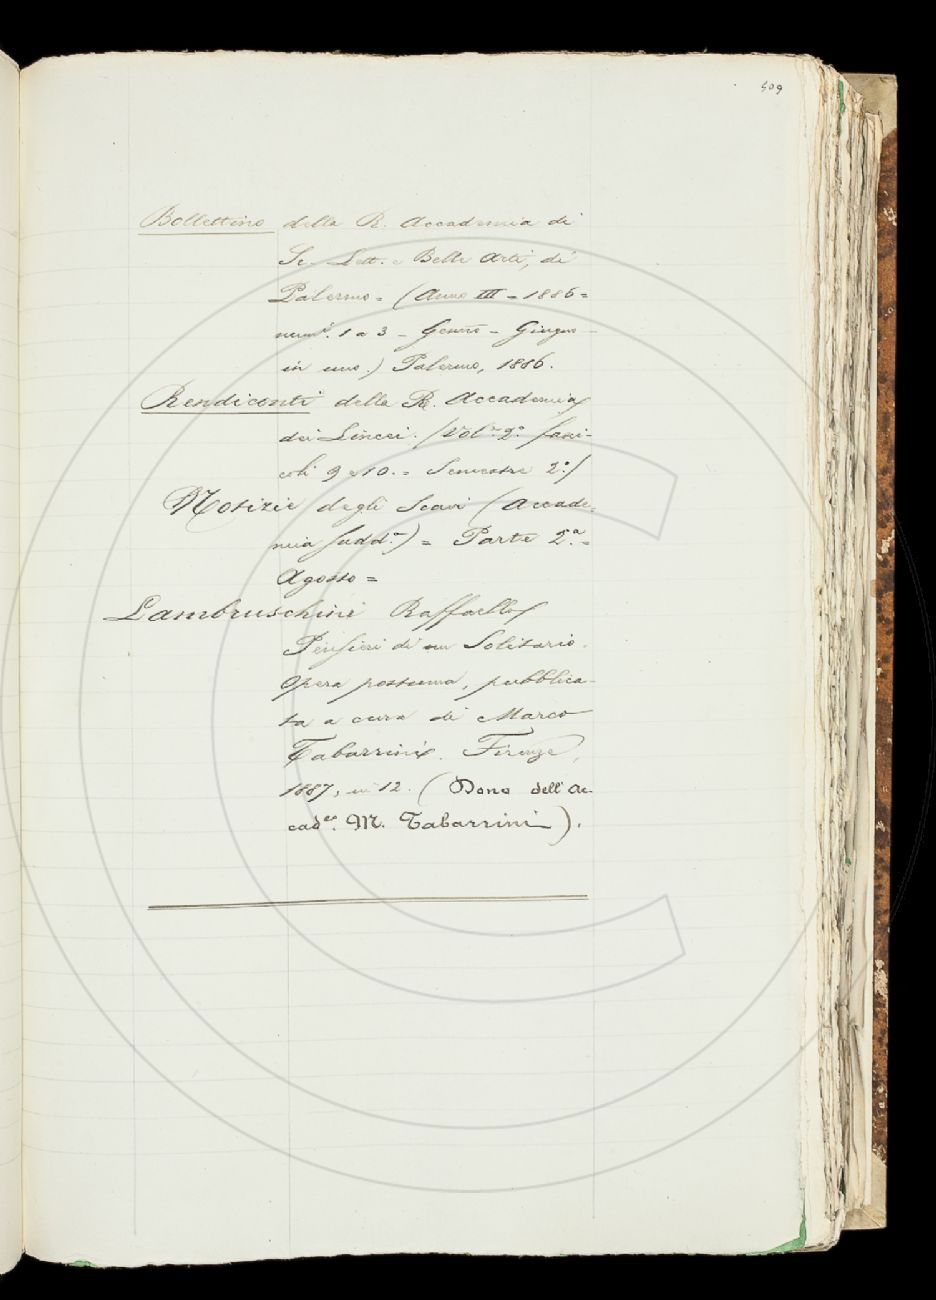 509
Bollettino della R. Accademia di
Sc. Lett. e Belle Arti, di
Palermo = (Anno III = 1886 =
numi. 1 a 3 - Genno - Giugno -
in uno.) Palermo, 1886.
Rendiconti della R. Accademia
dei Lincei. (Vol. 2º fasci-
coli 9 e 10. = Semestre 2º)
Notizie degli Scavi (Accade-
mia sudda) = Parte 2a. =
Agosto =
Lambruschini Raffaello
Pensieri di un Solitario.
Opera postuma, pubblica-
ta a cura di Marco
Tabarrini. Firenze,
1887, in 12. (Dono dell'Ac-
cadco. M. Tabarrini).